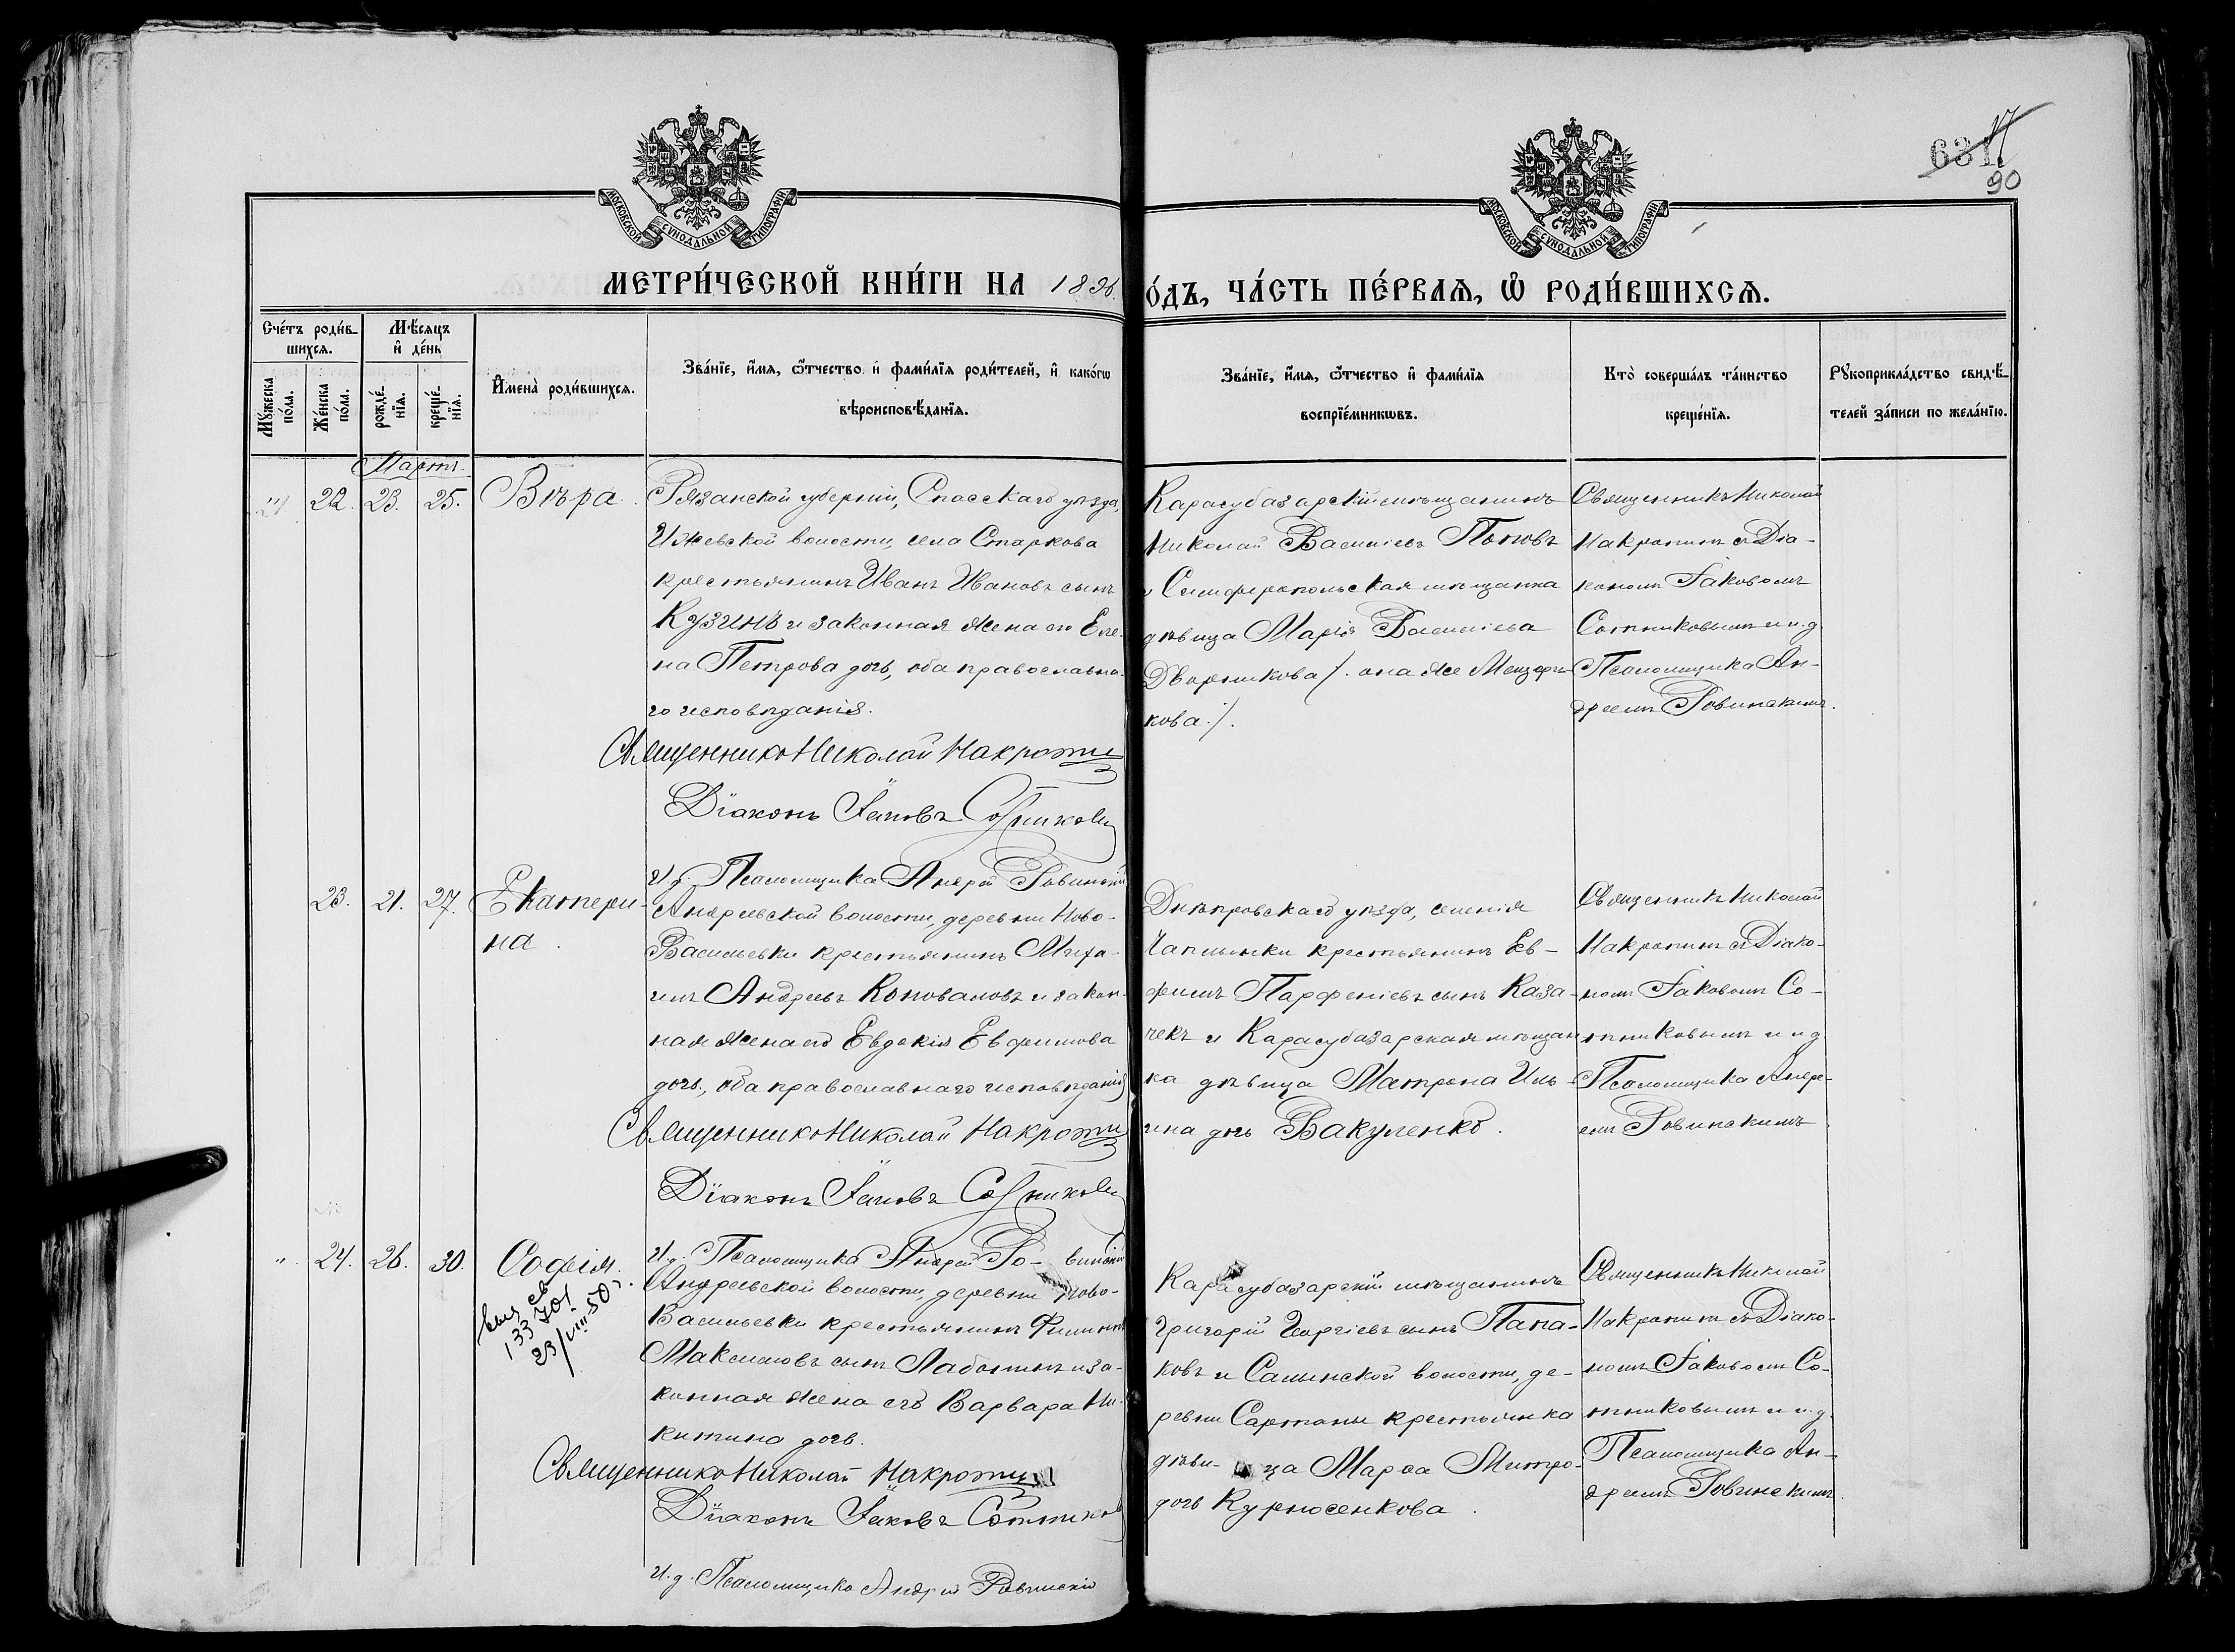 631
17
90
МОСКОВСКОЙ СѴНОДАЛЬНОЙ ТИПОГРАФІИ
МОСКОВСКОЙ СѴНОДАЛЬНОЙ ТИПОГРАФІИ
МЕТРИ́ЧЕСКОЙ КНИ́ГИ НА 1896
О́ДЪ, ЧА́СТЬ ПЕ́РВАѦ, Ѡ҆ РОДИ́ВШИХСѦ.
Сче́тъ роди́в-
шихсѧ.
Мѣ́сѧцъ
и҆ де́нь
Мꙋ́жеска
по́ла.
Же́нска
по́ла.
рожде́-
нїѧ.
креще́-
нїѧ.
И҆мена̀ роди́вшихсѧ.
Зва́нїе, и҆́мѧ, ѻ҆́тчество и҆ фами́лїѧ роди́телей, и҆ како́гѡ
вѣроисповѣ́данїѧ.
Зва́нїе, и҆́мѧ, ѻ҆́тчество и҆ фами́лїѧ
воспрїе́мникѡвъ.
Кто̀ соверша́лъ та́инство
креще́нїѧ.
Рꙋкоприкла́дство свидѣ́-
телей за́писи по жела́нїю.
Мартъ
22. 23. 25.
Вѣра.
Рязанской губерніи, Спасскаго уѣзда,
Ижевской волости, села Старкова
крестьянинъ Иванъ Ивановъ сынъ
Кузинъ и законная жена его Еле-
на Петрова дочь, оба православна-
го исповѣданія.
Священникъ Николай Накропин
Діаконъ Іаковъ Сотниковъ
И.д. Псаломщика Андрей Ровинскій
Карасубазарскій мѣщанинъ
Николай Василіевъ Поповъ
и Симферопольская мѣщанка
дѣвица Марія Василіева
Дворникова /. она же Мещеря-
кова ./.
Священникъ Николай
Накропинъ съ Діа-
кономъ Іаковомъ
Сотниковымъ и и.д.
Псаломщика Ан-
дреемъ Ровинскимъ.
23. 21. 27.
Екатери-
на.
Андреевской волости, деревни Ново-
Васильевки крестьянинъ Миха-
илъ Андреевъ Коноваловъ и закон-
ная жена его Евдокія Евфимова
дочь, оба православнаго исповѣданія
Священникъ Николай Накропин
Діаконъ Іаковъ Сотниковъ
И.д. Псаломщика Андрей Ровинскій
Днѣпровскаго уѣзда, селенія
Чаплынки крестьянинъ Ев-
фимъ Парфеніевъ сынъ Каза-
чекъ и Карасубазарская мѣщан-
ка дѣвица Матрона Иль-
ина дочь Вакуленко.
Священникъ Николай
Накропинъ съ Діако-
номъ Іаковомъ Со-
тниковымъ и и.д.
Псаломщика Андре-
емъ Ровинскимъ
" 24. 26. 30.
Софія.
выд св
133701
23/VIII 50 г.
Андреевской волости, деревни Ново-
Васильевки крестьянинъ Филиппъ
Максимовъ сынъ Лаботинъ и за-
конная жена его Варвара Ни-
китина дочь.
Священникъ Николай Накропин
Діаконъ Іаковъ Сотниковъ
И.д. Псаломщика Андрей Ровинскій
Карасубазарскій мѣщанинъ
Григорій Георгіевъ сынъ Папа-
ковъ и Салынской волости, де-
ревни Сартаны крестьянка
дѣви-ца Марѳа Митро-
дочь Курносенкова.
Священникъ Николай
Накропинъ съ Діако-
номъ Іаковомъ Со-
тниковымъ и и.д.
Псаломщика Ан-
дреемъ Ровинскимъ.